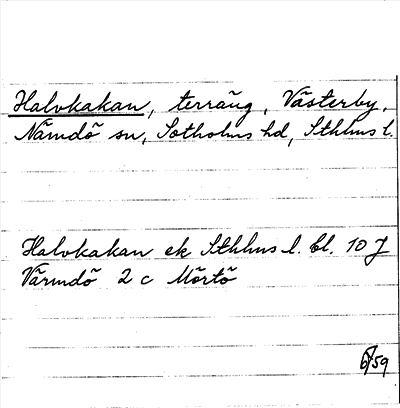 Halvkakan, terräng, Västerby,
Nämdö sn, Sotholms hd, Sthlms l.
Halvkakan ek Sthlms l. bl. 10 J
Värmdö 2 c Mörtö
59